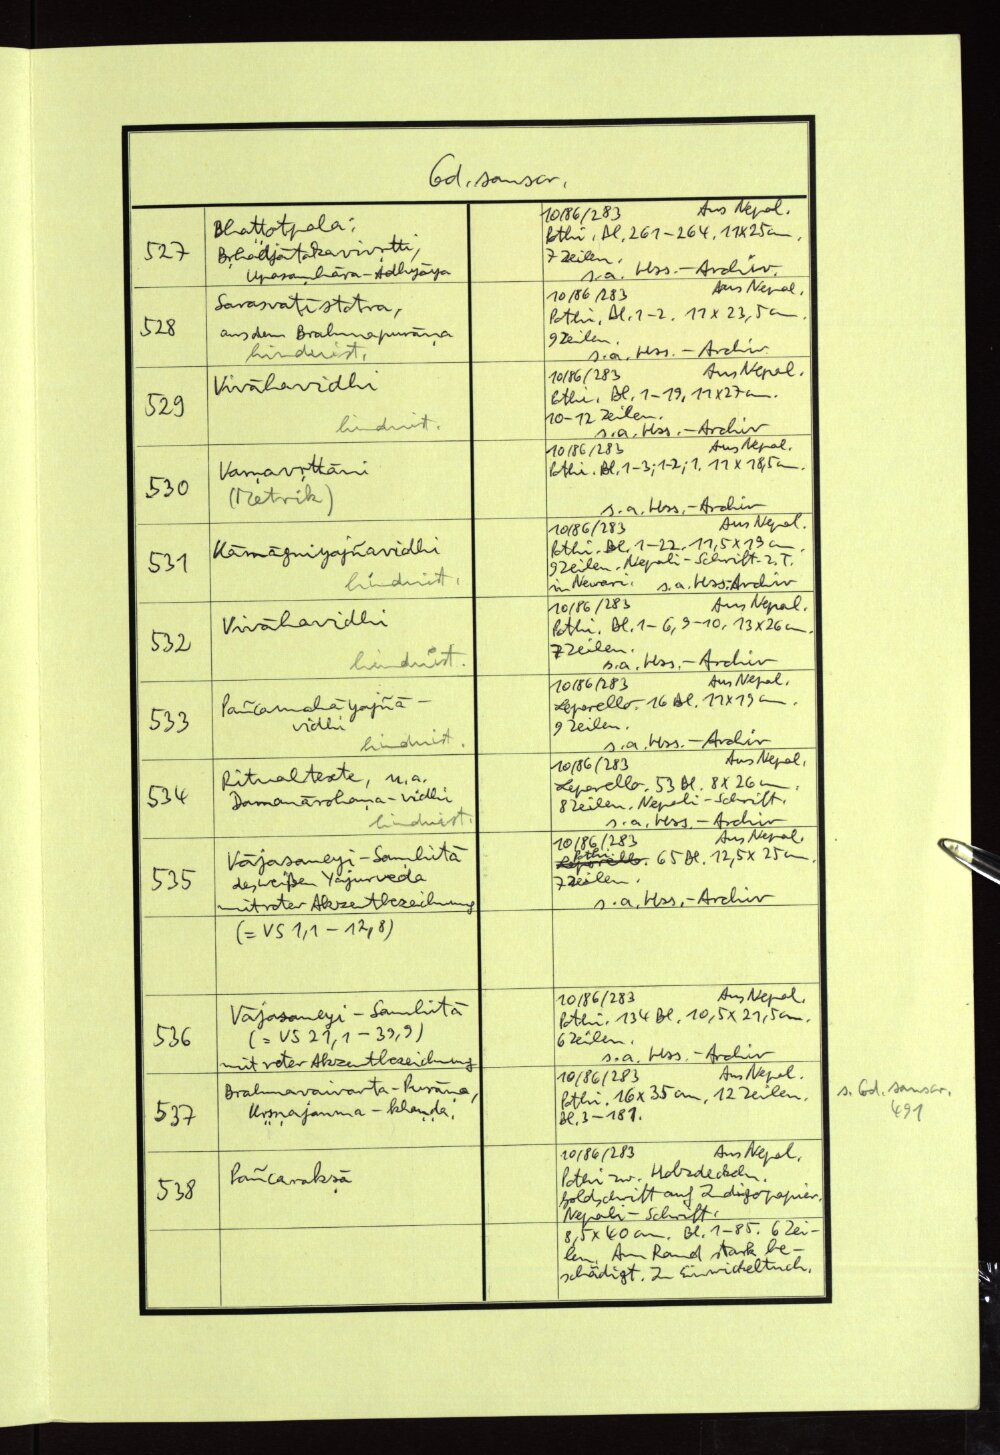 Cod. sanscr.
527
Bhaṭṭotpala:
Bṛhadjātakavivṛtti,
Upasaṃhāra-Adhyāya
10/86/283 Aus Nepal.
Pothi. Bl. 261-264. 11x25cm.
7 Zeilen.
s.a. Hss.-Archiv.
528
Sarasvatīstotra,
aus dem Brahmapurāṇa
hinduist.
10/86/283 Aus Nepal.
Pothi. Bl. 1-2. 11x23,5cm.
9 Zeilen.
s.a. Hss.-Archiv.
529
Vivāhavidhi
hinduist.
10/86/283 Aus Nepal.
Pothi. Bl. 1-19, 11x27cm.
10-12 Zeilen.
s.a. Hss.-Archiv
530
Varṇavṛttāni
(Metrik)
10/86/283 Aus Nepal.
Pothi. Bl. 1-3; 1-2; 1. 11x18,5cm.
s.a. Hss.-Archiv
531
Kāmāgniyajñavidhi
hinduist.
10/86/283 Aus Nepal.
Pothi. Bl. 1-22. 11,5x19cm.
9 Zeilen. Nepali-Schrift. z.T.
in Newari. s.a. Hss.-Archiv
532
Vivāhavidhi
hinduist.
10/86/283 Aus Nepal.
Pothi. Bl. 1-6, 9-10, 13x26cm.
7 Zeilen.
s.a. Hss.-Archiv
533
Pañcamahāyajñā-
vidhi
hinduist.
10/86/283 Aus Nepal.
Leporello. 16 Bl. 11x19cm.
9 Zeilen.
s.a. Hss.-Archiv
534
Ritualtexte, u.a.
Damanārohaṇa-vidhi
hinduist.
10/86/283 Aus Nepal.
Leporello. 53 Bl. 8x26cm.
8 Zeilen. Nepali-Schrift.
s.a. Hss.-Archiv
535
Vājasaneyi-Saṃhitā
des weißen Yajurveda
mit roter Akzentbezeichnung
(= VS 1,1-12,8)
10/86/283 Aus Nepal.
Pothi
Leporello. 65 Bl. 12,5x25cm.
7 Zeilen.
s.a. Hss.-Archiv
536
Vājasaneyi-Saṃhitā
(= VS 21,1-39,9)
mit roter Akzentbezeichnung
10/86/283 Aus Nepal.
Pothi. 134 Bl. 10,5x21,5cm.
6 Zeilen.
s.a. Hss.-Archiv
537
Brahmavaivarta-Purāṇa,
Kṛṣṇajanma-khaṇḍa.
10/86/283 Aus Nepal.
Pothi. 16x35cm, 12 Zeilen.
Bl. 3-181.
s. Cod. sanscr.
491
538
Pañcarakṣā
10/86/283 Aus Nepal.
Pothi zw. Holzdeckeln.
Goldschrift auf Indigopapier.
Nepali-Schrift.
8,5x40cm. Bl. 1-85. 6 Zei-
len. Am Rand stark be-
schädigt. In Einwickeltuch.